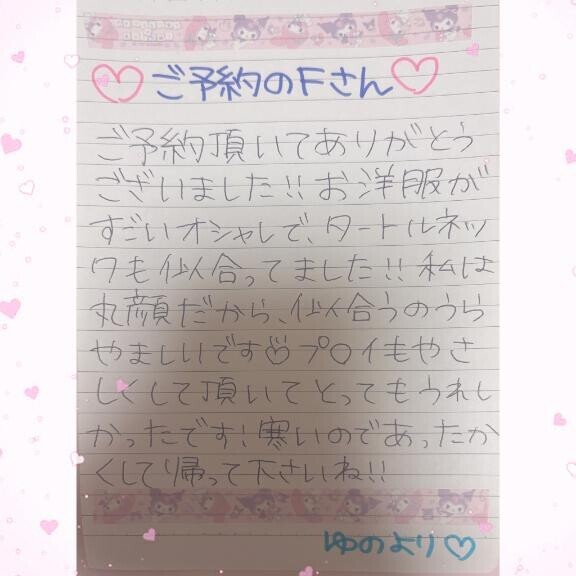 ♡ご予約のFさん♡
ご予約頂いてありがとう
ございました!!お洋服が
すごいオシャレで、タートルネッ
クも似合ってました!!私は
丸顔だから、似合うのうら
やましいです♡プ○イもやさ
しくして頂いてとってもうれし
かったです!寒いのであったか
くして帰って下さいね!!
ゆのより♡